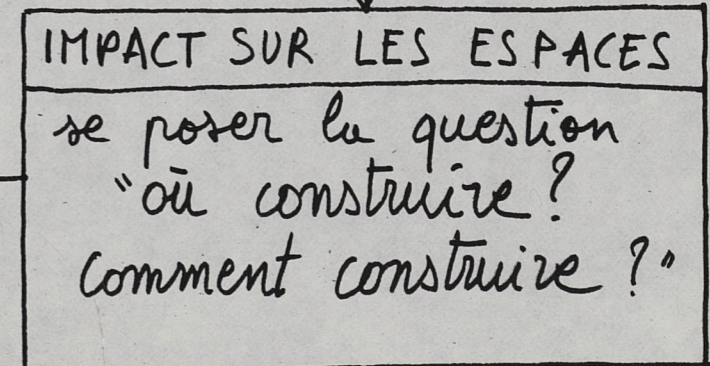 IMPACT SUR LES ESPACES
se poser la question
"où construire?
comment construire ?"